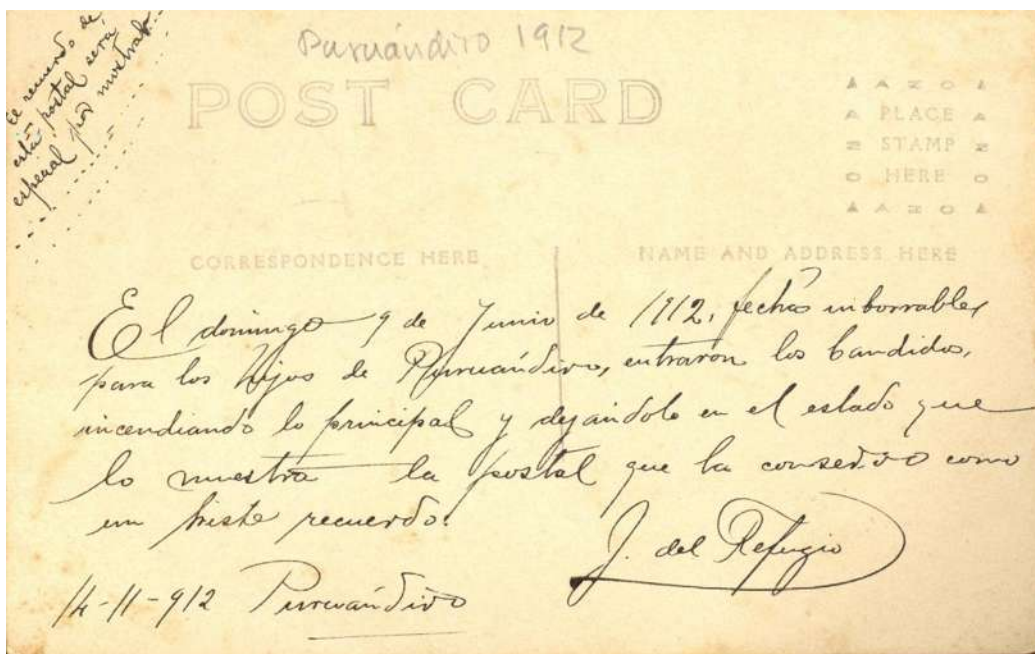 El recuerdo de
esta postal será
especial por mostrar
Puruándiro 1912
POST CARD
AZO
PLACE
STAMP
HERE
AZO
CORRESPONDENCE HERE
NAME AND ADDRESS HERE
El domingo 9 de Junio de 1912, fechas imborrables
para los hijos de Puruándiro, entraron los bandidos,
incendiando lo principal y dejándolo en el estado que
lo muestra la postal que la conservo como
un triste recuerdo.
J. del Refugio
14-11-912 Puruándiro